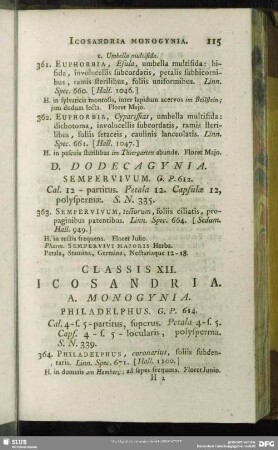 ICOSANDRIA MONOGYNIA. 115
c. Umbella multifida.
361. EUPHORBIA, Esula, umbella multifida: bi-
fida, involucellis subcordatis, petalis subbicorni-
bus, ramis sterilibus, foliis uniformibus. Linn.
Spec. 660. [Hall. 1046.]
H. in sylvaticis montosis, inter lapidum acervos im
jim dudum lecta. Floret Majo.
362. EUPHORBIA, Cyparissias, umbella multifida:
dichotoma, involucellis subcordatis, ramis steri-
libus, foliis setaceis, caulinis lanceolatis. Linn.
Spec. 661. [Hall. 1047.]
H. in pascuis sterilibus im Thiergarten abunde. Floret Majo.
D. DODECAGYNIA.
SEMPERVIVUM. G. P. 612.
Cal. 12 - partitus. Petala 12. Capsulæ 12,
polyspermæ. S. N. 335.
363. SEMPERVIVUM, tectorum, foliis ciliatis, pro-
paginibus patentibus. Linn. Spec. 664. [Sedum.
Hall. 949.]
H. in tectis frequens. Floret Julio.
Pharm. SEMPERVIVI MAJORIS Herba.
Petala, Stamina, Germina, Nectariaque 12-18.
CLASSIS XII.
ICOSANDRIA.
A. MONOGYNIA.
PHILADELPHUS. G. P. 614.
Cal. 4-s. 5-partitus, superus. Petala 4-s. 5.
Caps. 4 - s. 5 - locularis, polysperma.
S. N. 339.
364. PHILADELPHUS, coronarius, foliis subden-
tatis. Linn. Spec. 671. [Hall. 1100.]
H. in dumetis am Hamberg; ad sepes frequens. Floret Junio.
H 2
SLUB